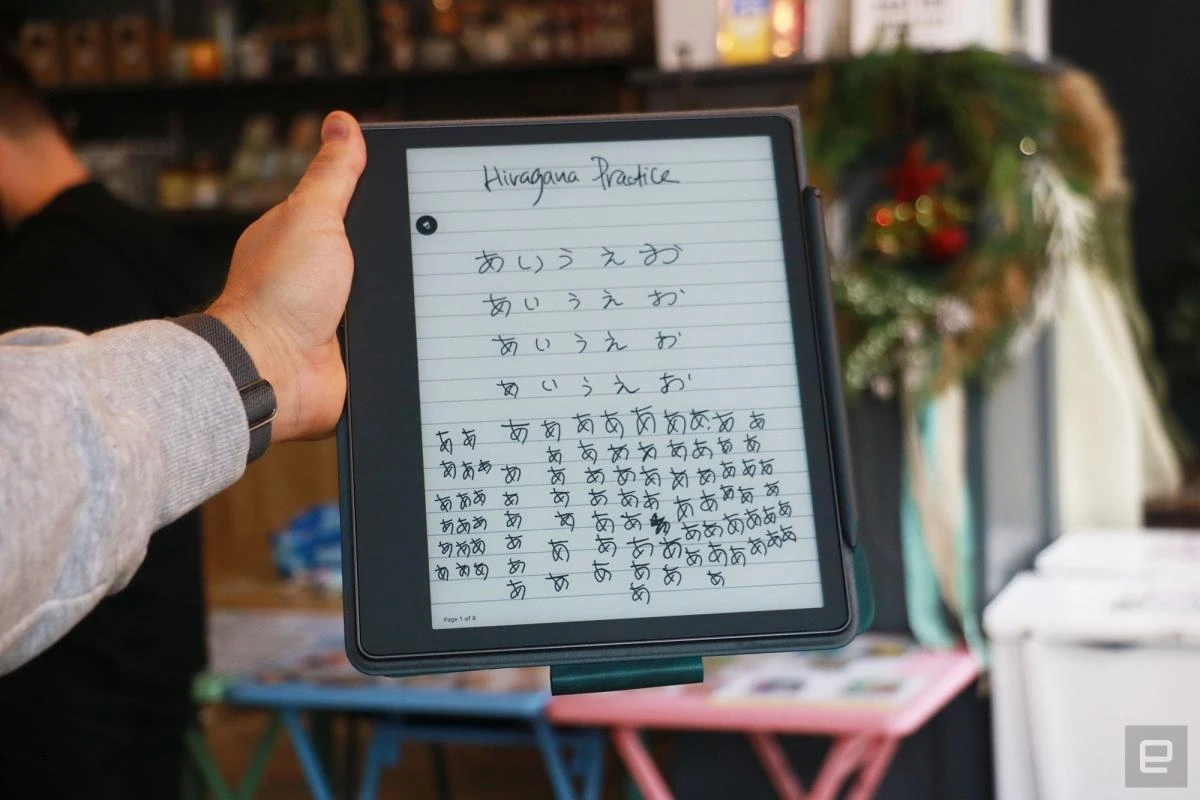 Hiragana Practice
あ い う え お
あ い う え お
あ い う え お
あ い う え お
あ あ あ あ あ あ あ あ あ あ あ
あ あ あ あ あ あ あ あ あ あ あ あ
あ あ あ あ あ あ あ あ あ あ あ あ あ
あ あ あ あ あ あ あ あ あ あ あ あ あ
あ あ あ あ あ あ あ あ あ あ あ あ あ
あ あ あ あ あ あ あ あ あ あ あ あ あ あ
あ あ あ あ あ あ
あ
Page 1 of 8
e